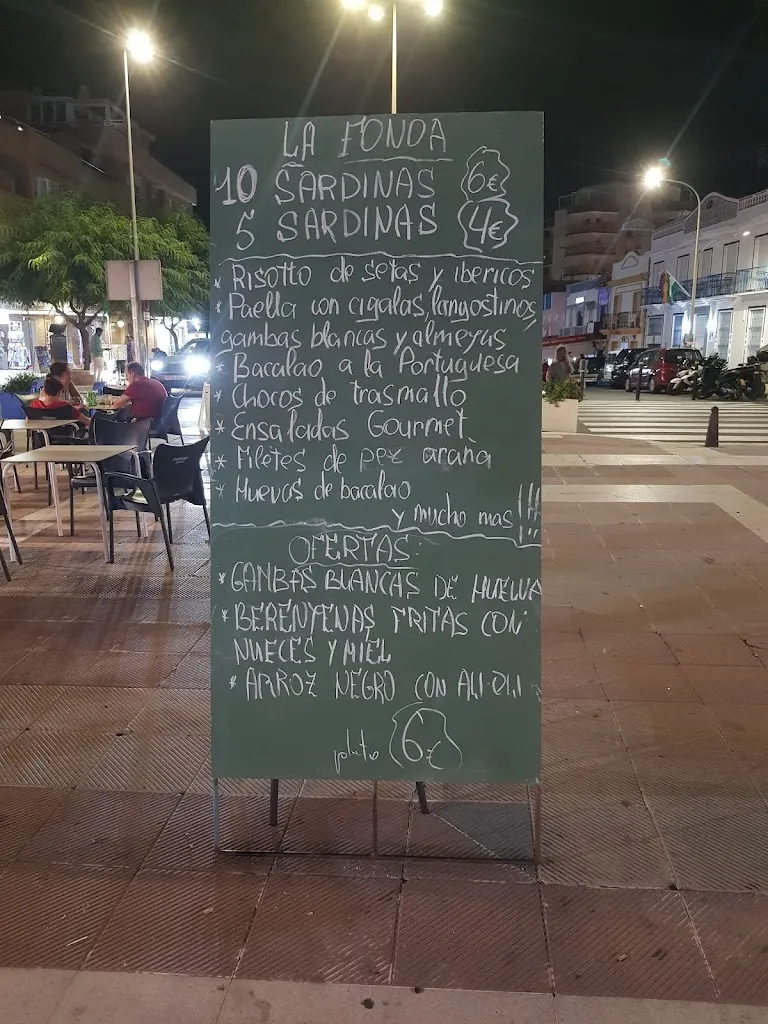 LA FONDA
10 SARDINAS 6€
5 SARDINAS 4€
* Risotto de setas y ibericos
* Paella con cigalas, langostinos,
gambas blancas y almejas
* Bacalao a la Portuguesa
* Chocos de trasmallo
* Ensaladas Gourmet
* Filetes de pez araña
* Huevas de bacalao
y mucho mas!!!
OFERTAS
* GANBAS BLANCAS DE HUELVA
* BERENYENAS FRITAS CON
NUECES Y MIEL
* ARROZ NEGRO CON ALI-OLI
plato 6€